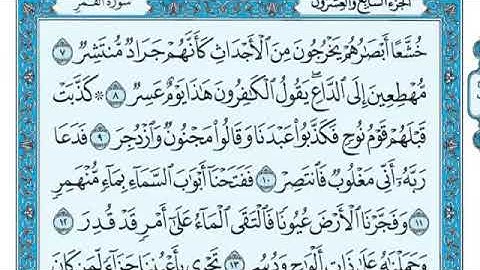 الجزء السابع والعشرون سورة القمر
خُشَّعًا أَبْصَٰرُهُمْ يَخْرُجُونَ مِنَ ٱلْأَجْدَاثِ كَأَنَّهُمْ جَرَادٌ مُّنتَشِرٌ ٧
مُّهْطِعِينَ إِلَى ٱلدَّاعِ ۖ يَقُولُ ٱلْكَٰفِرُونَ هَٰذَا يَوْمٌ عَسِرٌ ٨ ۞ كَذَّبَتْ
قَبْلَهُمْ قَوْمُ نُوحٍ فَكَذَّبُوا۟ عَبْدَنَا وَقَالُوا۟ مَجْنُونٌ وَٱزْدُجِرَ ٩ فَدَعَا
رَبَّهُۥٓ أَنِّى مَغْلُوبٌ فَٱنتَصِرْ ١٠ فَفَتَحْنَآ أَبْوَٰبَ ٱلسَّمَآءِ بِمَآءٍ مُّنْهَمِرٍ
١١ وَفَجَّرْنَا ٱلْأَرْضَ عُيُونًا فَٱلْتَقَى ٱلْمَآءُ عَلَىٰٓ أَمْرٍ قَدْ قُدِرَ ١٢
وَحَمَلْنَٰهُ عَلَىٰ ذَاتِ أَلْوَٰحٍ وَدُسُرٍ ١٣ تَجْرِى بِأَعْيُنِنَا جَزَآءً لِّمَن كَانَ